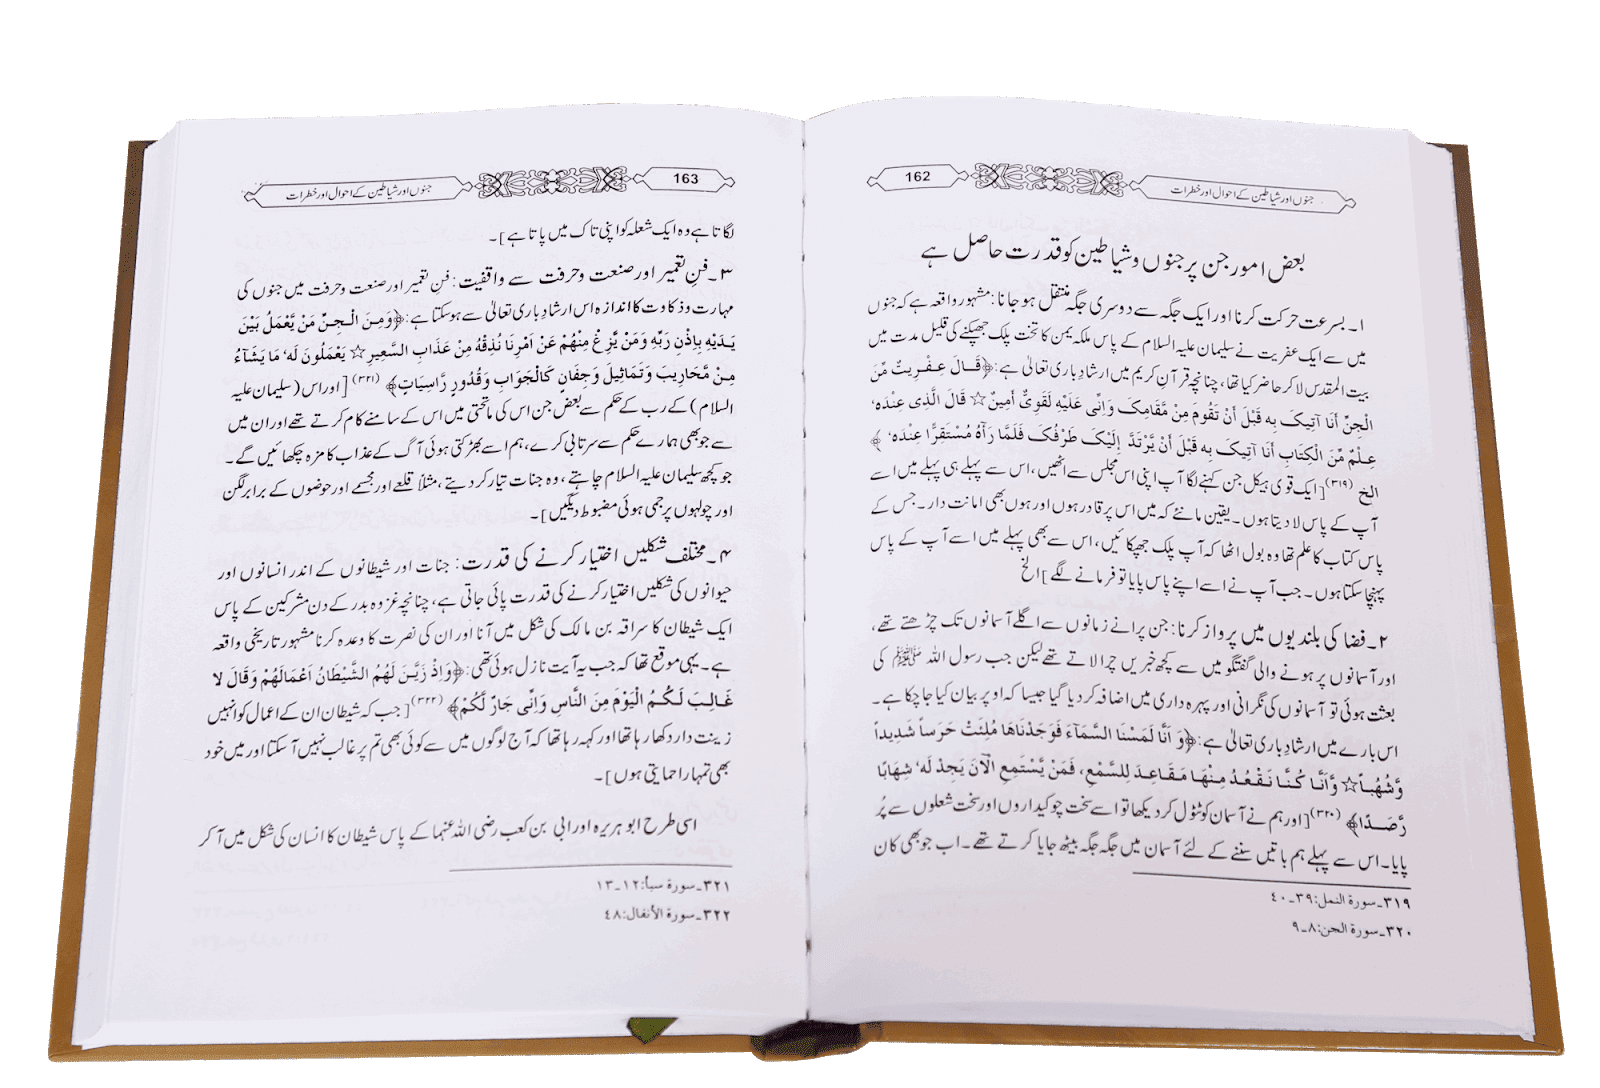 162
جنوں اور شیاطین کے احوال اور خطرات
بعض امور جن پر جنوں و شیاطین کو قدرت حاصل ہے
۱۔ بسرعت حرکت کرنا اور ایک جگہ سے دوسری جگہ منتقل ہو جانا: مشہور واقعہ ہے کہ جنوں
میں سے ایک عفریت نے سلیمان علیہ السلام کے پاس ملکہ یمن کا تخت پلک جھپکنے کی قلیل مدت میں
بیت المقدس لا کر حاضر کیا تھا، چنانچہ قرآن کریم میں ارشاد باری تعالیٰ ہے: ﴿قَالَ عِفْرِیتٌ مِّنَ
الْجِنِّ أَنَا آتِیکَ بِهِ قَبْلَ أَنْ تَقُومَ مِنْ مَّقَامِکَ وَاِنِّی عَلَیْهِ لَقَوِیٌّ أَمِینٌ☆ قَالَ الَّذِی عِنْدَهُ
عِلْمٌ مِّنَ الْکِتَابِ أَنَا آتِیکَ بِهِ قَبْلَ أَنْ یَّرْتَدَّ إِلَیْکَ طَرْفُکَ فَلَمَّا رَآهُ مُسْتَقِرًّا عِنْدَهُ﴾
الخ (۳۱۹) [ایک قوی ہیکل جن کہنے لگا آپ اپنی اس مجلس سے اٹھیں، اس سے پہلے ہی پہلے میں اسے
آپ کے پاس لا دیتا ہوں۔ یقین مانئے کہ میں اس پر قادر ہوں اور ہوں بھی امانت دار۔ جس کے
پاس کتاب کا علم تھا وہ بول اٹھا کہ آپ پلک جھپکائیں، اس سے بھی پہلے میں اسے آپ کے پاس
پہنچا سکتا ہوں۔ جب آپ نے اسے اپنے پاس پایا تو فرمانے لگے] الخ
۲۔ فضا کی بلندیوں میں پرواز کرنا: جن پرانے زمانوں سے اگلے آسمانوں تک چڑھتے تھے،
اور آسمانوں پر ہونے والی گفتگو میں سے کچھ خبریں چرا لاتے تھے لیکن جب رسول اللہ ﷺ کی
بعثت ہوئی تو آسمانوں کی نگرانی اور پہرہ داری میں اضافہ کر دیا گیا جیسا کہ اوپر بیان کیا جا چکا ہے۔
اس بارے میں ارشاد باری تعالیٰ ہے: ﴿وَأَنَّا لَمَسْنَا السَّمَآءَ فَوَجَدْنَاهَا مُلِئَتْ حَرَساً شَدِیداً
وَّشُهُباً☆ وَّأَنَّا کُنَّا نَقْعُدُ مِنْهَا مَقَاعِدَ لِلسَّمْعِ، فَمَنْ یَّسْتَمِعِ الْآنَ یَجِدْ لَهُ شِهَابًا
رَّصَدًا﴾ (۳۲۰) [اور ہم نے آسمان کو ٹٹول کر دیکھا تو اسے سخت چوکیداروں اور سخت شعلوں سے پُر
پایا۔ اس سے پہلے ہم باتیں سننے کے لئے آسمان میں جگہ جگہ بیٹھ جایا کرتے تھے۔ اب جو بھی کان
۳۱۹۔ سورة النمل: ۳۹۔۴۰
۳۲۰۔ سورة الجن: ۸۔۹
163
جنوں اور شیاطین کے احوال اور خطرات
لگاتا ہے وہ ایک شعلہ کو اپنی تاک میں پاتا ہے]۔
۳۔ فن تعمیر اور صنعت وحرفت سے واقفیت: فن تعمیر اور صنعت وحرفت میں جنوں کی
مہارت وذکاوت کا اندازہ اس ارشاد باری تعالیٰ سے ہو سکتا ہے: ﴿وَمِنَ الْجِنِّ مَنْ یَّعْمَلُ بَیْنَ
یَدَیْهِ بِإِذْنِ رَبِّهِ وَمَنْ یَّزِغْ مِنْهُمْ عَنْ اَمْرِنَا نُذِقْهُ مِنْ عَذَابِ السَّعِیرِ☆ یَعْمَلُونَ لَهُ مَا یَشَآءُ
مِنْ مَّحَارِیبَ وَتَمَاثِیلَ وَجِفَانٍ کَالْجَوَابِ وَقُدُورٍ رَّاسِیَاتٍ﴾ (۳۲۱) [اور اس (سلیمان علیہ
السلام) کے رب کے حکم سے بعض جن اس کی ماتحتی میں اس کے سامنے کام کرتے تھے اور ان میں
سے جو بھی ہمارے حکم سے سرتابی کرے، ہم اسے بھڑکتی ہوئی آگ کے عذاب کا مزہ چکھائیں گے۔
جو کچھ سلیمان علیہ السلام چاہتے، وہ جنات تیار کر دیتے، مثلاً قلعے اور مجسمے اور حوضوں کے برابر لگن
اور چولہوں پر جمی ہوئی مضبوط دیگیں]۔
۴۔ مختلف شکلیں اختیار کرنے کی قدرت: جنات اور شیطانوں کے اندر انسانوں اور
حیوانوں کی شکلیں اختیار کرنے کی قدرت پائی جاتی ہے، چنانچہ غزوہ بدر کے دن مشرکین کے پاس
ایک شیطان کا سراقہ بن مالک کی شکل میں آنا اور ان کی نصرت کا وعدہ کرنا مشہور تاریخی واقعہ
ہے۔ یہی موقع تھا کہ جب یہ آیت نازل ہوئی تھی: ﴿وَاِذْ زَیَّنَ لَهُمُ الشَّیْطَانُ اَعْمَالَهُمْ وَقَالَ لا
غَالِبَ لَکُمُ الْیَوْمَ مِنَ النَّاسِ وَاِنِّی جَارٌ لَّکُمْ﴾ (۳۲۲) [جب کہ شیطان ان کے اعمال کو انہیں
زینت دار دکھا رہا تھا اور کہہ رہا تھا کہ آج لوگوں میں سے کوئی بھی تم پر غالب نہیں آ سکتا اور میں خود
بھی تمہارا حمایتی ہوں]۔
اسی طرح ابو ہریرہ اور ابی بن کعب رضی اللہ عنہما کے پاس شیطان کا انسان کی شکل میں آ کر
۳۲۱۔ سورة سبأ: ۱۲۔۱۳
۳۲۲۔ سورة الأنفال: ۴۸